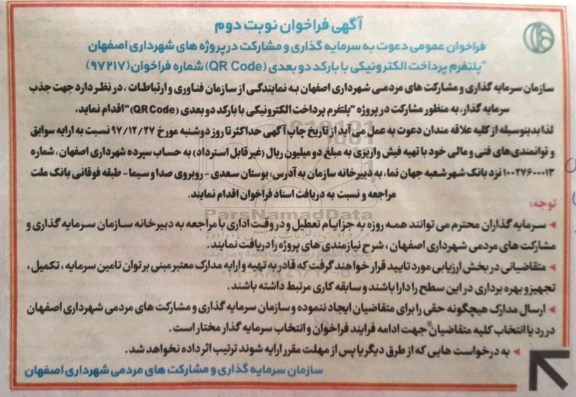 آگهی فراخوان نوبت دوم
فراخوان عمومی دعوت به سرمایه گذاری و مشارکت در پروژه های شهرداری اصفهان
"پلتفرم پرداخت الکترونیکی با بارکد دو بعدی (QR Code) شماره فراخوان (۹۷۲۱۷)
سازمان سرمایه گذاری و مشارکت های مردمی شهرداری اصفهان به نمایندگی از سازمان فناوری و ارتباطات، در نظر دارد جهت جذب
سرمایه گذار، به منظور مشارکت در پروژه "پلتفرم پرداخت الکترونیکی با بارکد دو بعدی (QR Code)" اقدام نماید.
لذا بدینوسیله از کلیه علاقه مندان دعوت به عمل می آید از تاریخ چاپ آگهی حداکثر تا روز دوشنبه مورخ ۹۷/۱۲/۲۷ نسبت به ارایه سوابق
و توانمندی‌های فنی و مالی خود با تهیه فیش واریزی به مبلغ دو میلیون ریال (غیر قابل استرداد) به حساب سپرده شهرداری اصفهان، شماره
۱۰۰۲۷۶۰۰۰۱۳ نزد بانک شهر شعبه جهان نما، به دبیرخانه سازمان به آدرس: بوستان سعدی - روبروی صدا و سیما - طبقه فوقانی بانک ملت
مراجعه و نسبت به دریافت اسناد فراخوان اقدام نمایند.
توجه:
سرمایه گذاران محترم می توانند همه روزه به جز ایام تعطیل و در وقت اداری با مراجعه به دبیرخانه سازمان سرمایه گذاری و
مشارکت های مردمی شهرداری اصفهان، شرح نیازمندی های پروژه را دریافت نمایند.
متقاضیانی در بخش ارزیابی مورد تایید قرار خواهند گرفت که قادر به تهیه و ارایه مدارک معتبر مبنی بر توان تامین سرمایه، تکمیل،
تجهیز و بهره برداری در این سطح را دارا باشند و سابقه کاری مرتبط داشته باشند.
ارسال مدارک هیچگونه حقی را برای متقاضیان ایجاد ننموده و سازمان سرمایه گذاری و مشارکت های مردمی شهرداری اصفهان
در رد یا انتخاب کلیه متقاضیان جهت ادامه فرایند فراخوان و انتخاب سرمایه گذار مختار است.
به درخواست هایی که از طرق دیگر یا پس از مهلت مقرر ارایه شوند ترتیب اثر داده نخواهد شد.
سازمان سرمایه گذاری و مشارکت های مردمی شهرداری اصفهان
ParsNamadData